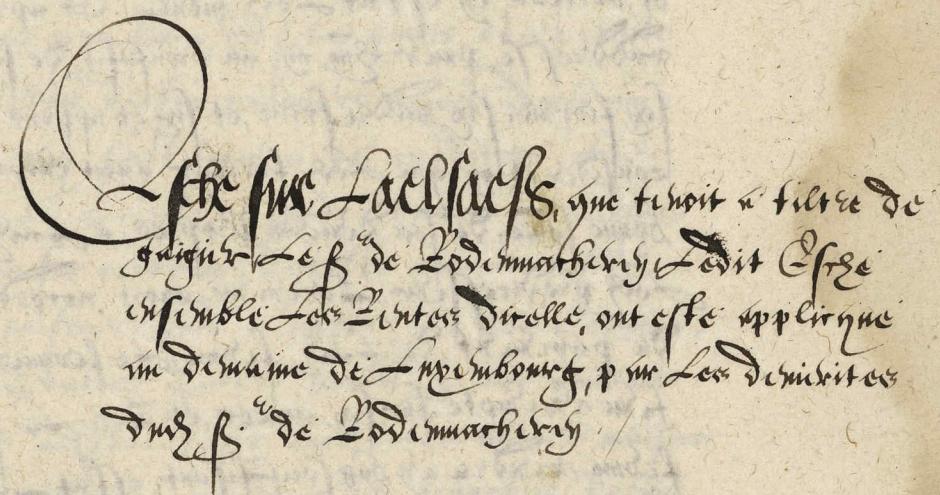 Esche sur Laelsaess, que tenoit a tiltre de
gaigier, Le sr de Rodenmacheren, Ledit Esche
ensemble Les Rentes dicelle, ont este applicque
au demaine de Luxembourg, par Les demerites
dud sr de Rodenmacheren